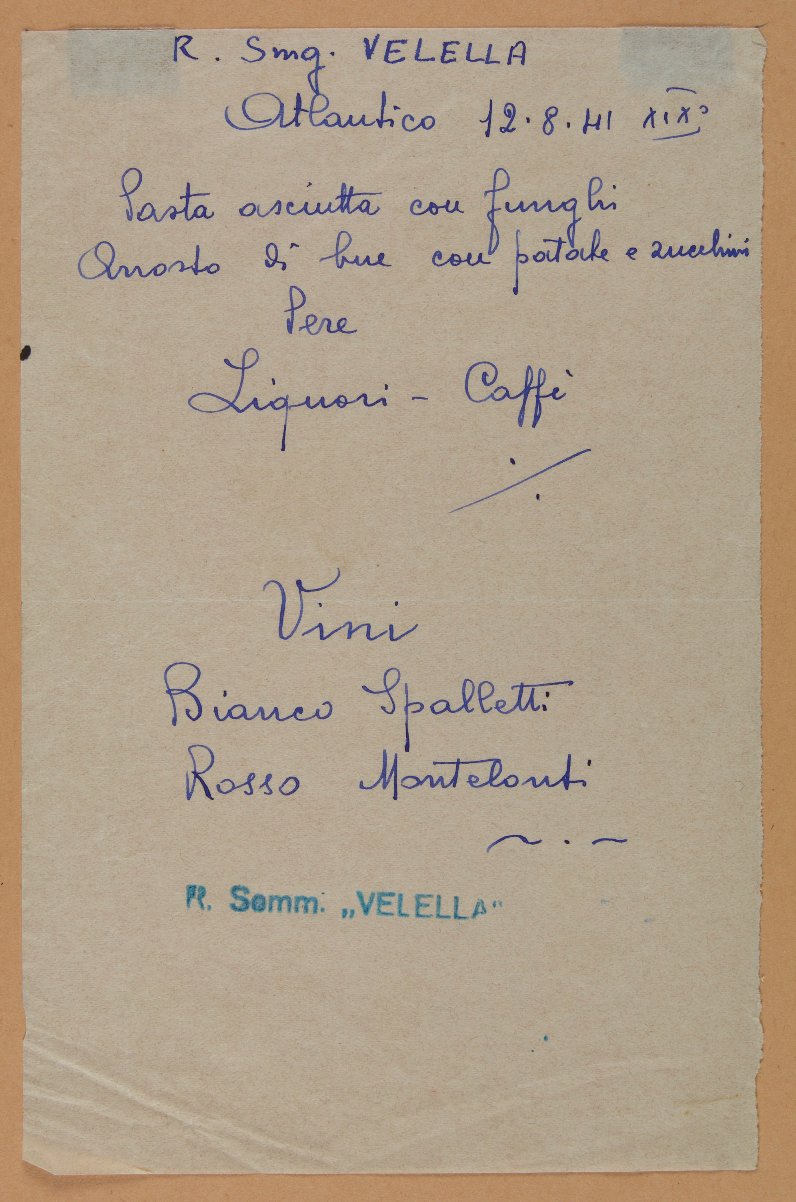 R. Smg. VELELLA
Atlantico 12.8.41 XIXº
Pasta asciutta con funghi
Arrosto di bue con patate e zucchini
Pere
Liquori - Caffè
Vini
Bianco Spalletti
Rosso
R. Somm. „VELELLA"